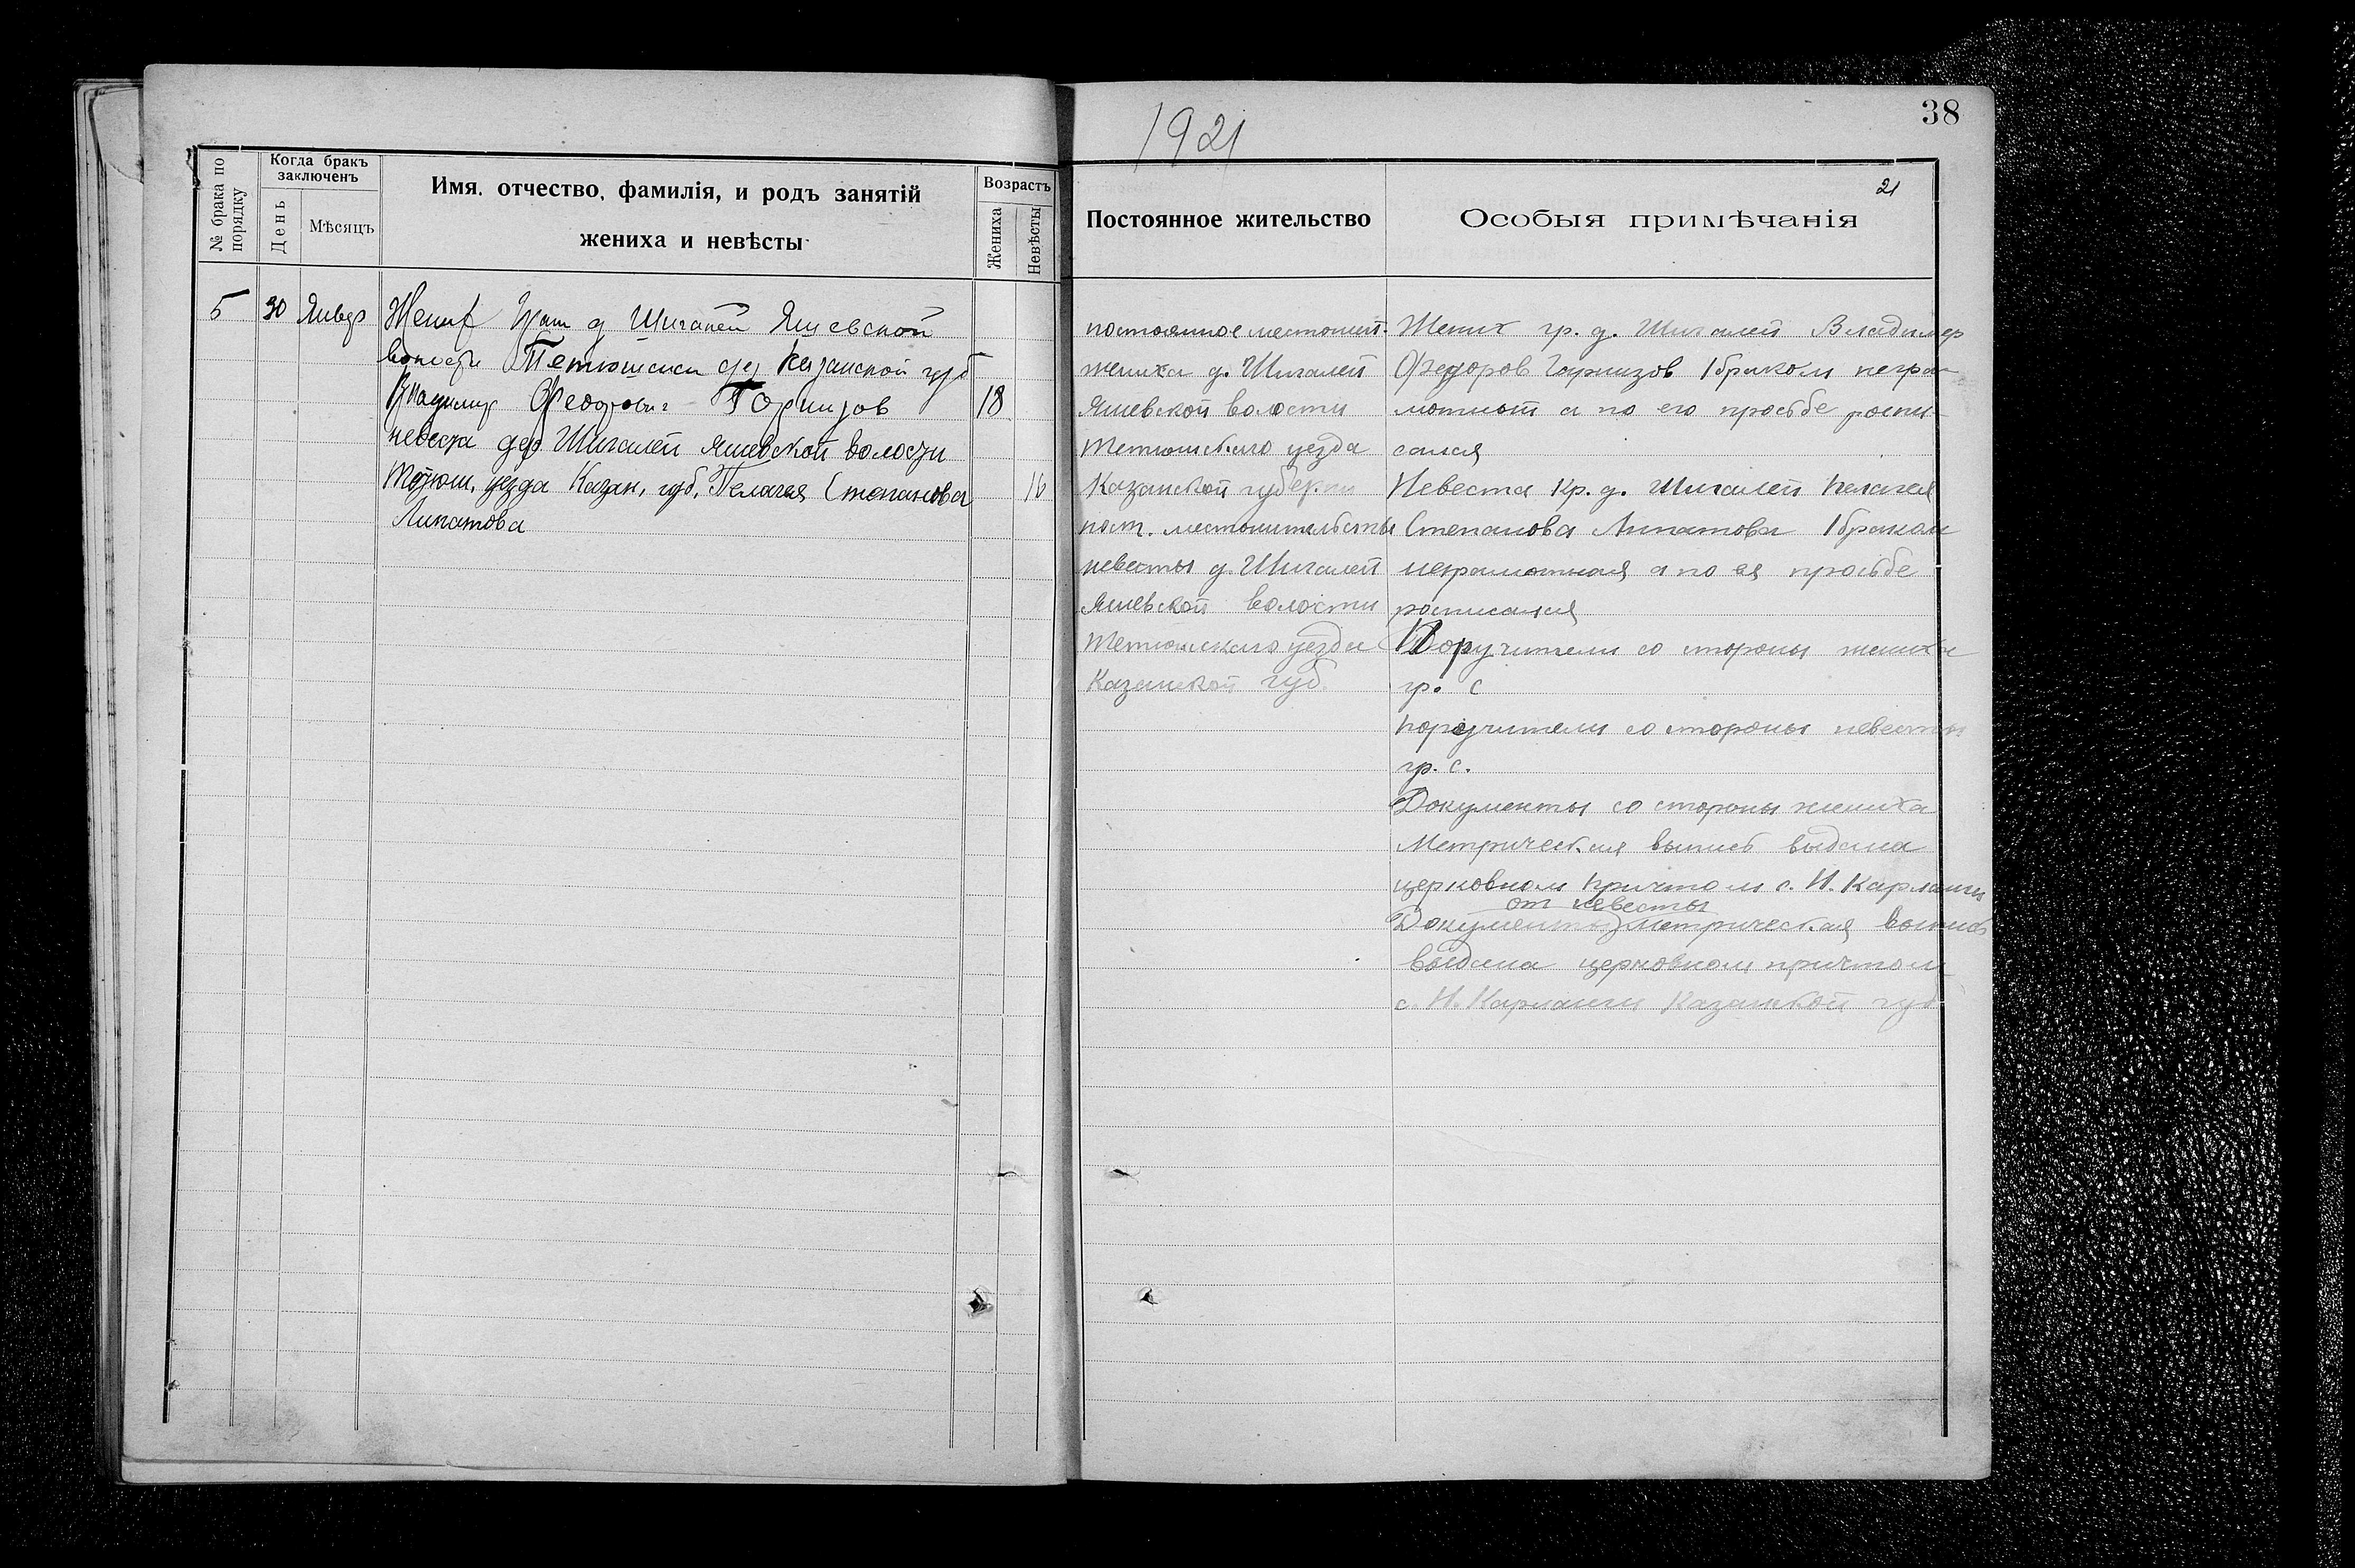 № брака по порядку
Когда бракъ заключенъ
День
Мѣсяцъ
Имя, отчество, фамилія, и родъ занятій
жениха и невѣсты
Возрастъ
Жениха
Невѣсты
5 30 Январ
Жених Граж д Шигалей Яшевской
волости Тетюшск уез Казанской губ
Владимир Феодорович Гарнизов 18
невеста дер Шигалей Яшевской волости
Тетюш. уезда Казан. губ. Пелагея Степанова 16
Липатова
1921
38
21
Постоянное жительство
Особыя примѣчанія
постоянное местожит.
жениха д. Шигалей
Яшевской волости
Тетюшского уезда
Казанской губерни
пост. местожительства
невесты д. Шигалей
Яшевской волости
Тетюшского уезда
Казанской губ.
Жених гр. д. Шигалей Владимер
Федоров Гарнизов 1 браком негра-
мотный а по его просьбе роспи-
сался
Невеста кр. д. Шигалей Пелагея
Степанова Липатова 1 браком
неграмотная а по ея просьбе
росписался
Поручители со стороны жениха
гр. с
поручители со стороны невесты
гр. с.
Документы со стороны жениха
Метрическая выпись выдана
церковном причтом с. Н. Карланги
от невесты
Документы метрическая выпись
выдана церковном причтом
с. Н. Карланги Казанской губ